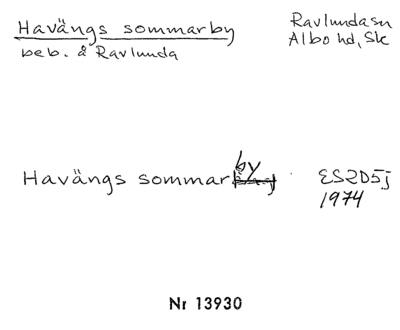 Havängs sommarby
beb. å Ravlunda
Ravlundasn
Albo hd, Sk
by
Havängs sommar
ES2D5j
1974
Nr 13930